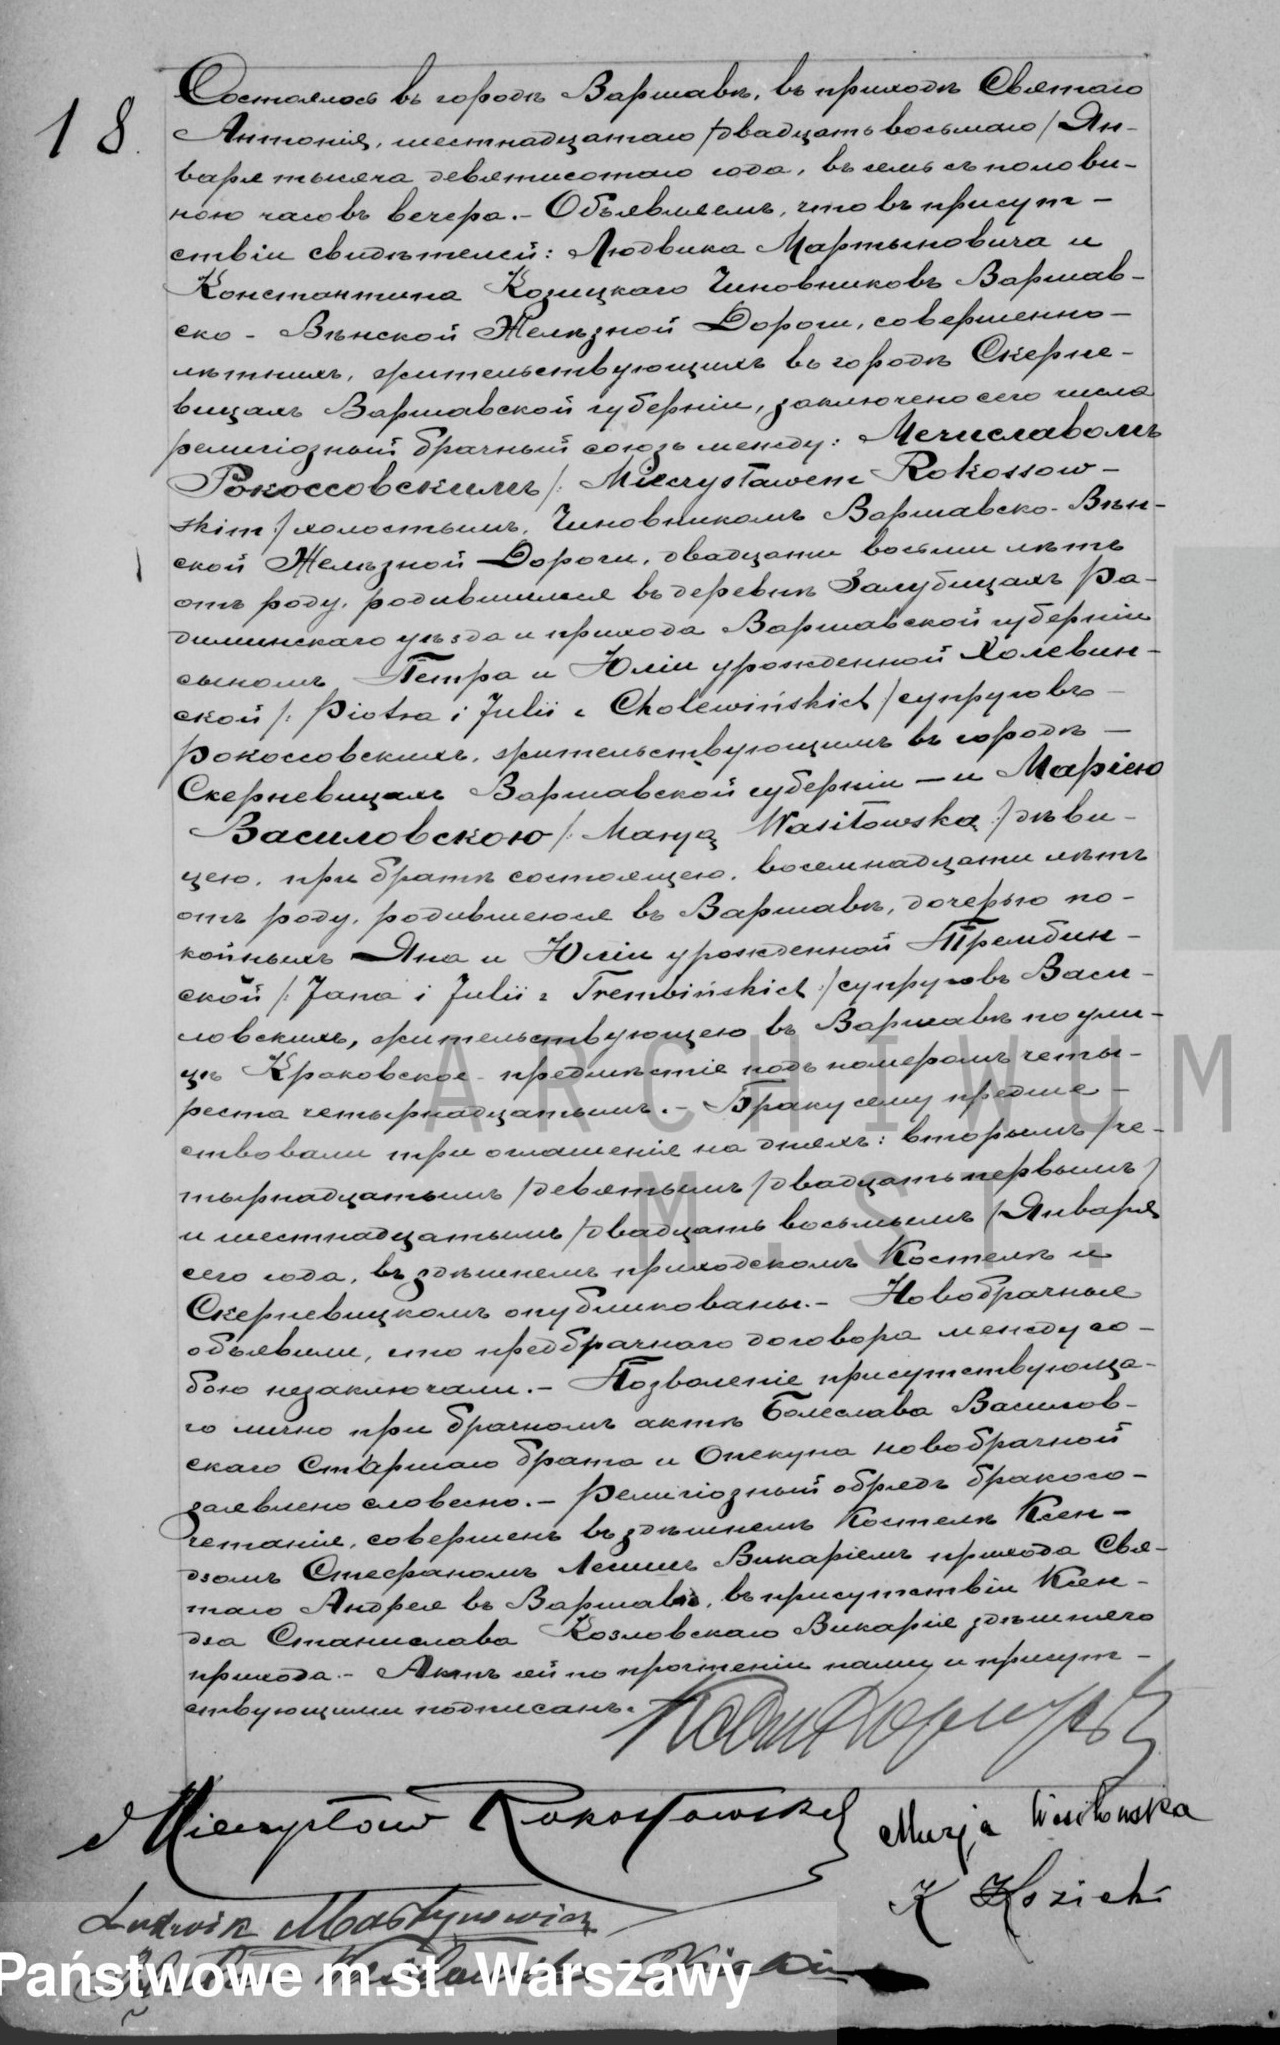 18.
Состоялось въ городѣ Варшавѣ, въ приходѣ Святаго
Антонія, шестнадцатаго /двадцать восьмаго/ Ян-
варя тысяча девятисотаго года, въ семь съ полови-
ною часовъ вечера. – Объявляемъ, что въ присут-
ствіи свидѣтелей: Людвика Мартыновича и
Константина Козицкаго Чиновниковъ Варшав-
ско - Вѣнской Желѣзной Дороги, совершенно-
лѣтнихъ, жительствующихъ въ городѣ Скерне-
вицахъ Варшавской губерніи, заключено сего числа
религіозный брачный союзъ между: Мечиславомъ
Рокоссовскимъ /: Mieczysławem Rokossow-
skim :/ холостымъ, Чиновникомъ Варшавско - Вѣн-
ской Желѣзной Дороги, двадцати восьми лѣтъ
отъ роду, родившимся въ деревнѣ Залубицахъ Ра-
диминскаго уѣзда и прихода Варшавской губерніи
сыномъ Петра и Юліи урожденной Холевин-
ской /: Piotra i Julii z Cholewińskich / супруговъ –
Рокоссовскихъ, жительствующимъ въ городѣ –
Скерневицахъ Варшавской губерніи – и Маріею
Василовскою /: Maryą Wasiłowską :/ дѣви-
цею, при братѣ состоящею, восемнадцати лѣтъ
отъ роду, родившеюся въ Варшавѣ, дочерью по-
койныхъ Яна и Юліи урожденной Трембин-
ской /: Jana i Julii z Trembińskich :/ супруговъ Васи-
ловскихъ, жительствующею въ Варшавѣ по ули-
цѣ Краковское - предмѣстіе подъ номеромъ четы-
реста четырнадцатымъ. – Браку сему предше-
ствовали три оглашенія на дняхъ: вторымъ /че-
тырнадцатымъ /девятымъ /двадцать первымъ/
и шестнадцатымъ /двадцать восьмымъ/ Января
сего года, въ здѣшнемъ приходскомъ Костелѣ и
Скерневицкомъ опубликованы. – Новобрачные
объявили, что предбрачнаго договора между со-
бою незаключали. – Позволеніе присутствующа-
го лично при брачномъ актѣ Болеслава Василов-
скаго Старшаго брата и Опекуна новобрачной
заявлено словесно. – Религіозный обрядъ бракосо-
четанія, совершенъ въ здѣшнемъ Костелѣ Ксен-
дзомъ Стефаномъ Викаріемъ прихода Свя-
таго Андрея въ Варшавѣ, въ присутствіи Ксен-
дза Станислава Козловскаго Викарія здѣшняго
прихода. – Актъ сей по прочтеніи нами и присут-
ствующими подписанъ.
Mieczysław Rokossowski
Marja Wasiłowska
K Kozicki
Ludwik Martynowicz
ARCHIWUM
M.ST.
Państwowe m.st. Warszawy